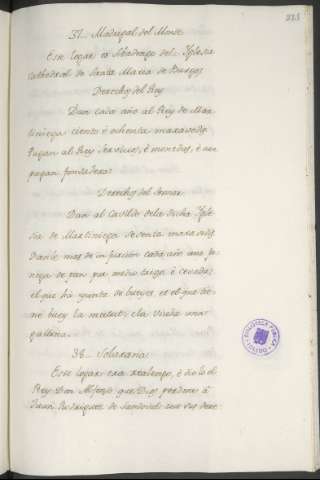 223
37.. Madrigal del Monte
Este logar es Abadengo del Iglesia
Cathedral de Santa Maria de Burgos
Derechos del Rey
Dan cada año al Rey de Mar
tiniega ciento è ochenta maravedis
Pagan al Rey servicios, è monedas, è non
pagan fonsadera:
Derechos del Sennor
Dan al Cavildo de la dicha Igle
sia de Martiniega sesenta maravedis
Danle mas de infurcion cada año una fa
nega de pan por medio trigo è cevada;
el que ha yunta de bueyes, et el que tie
ne buey la mitat; è la viuda una
quilina.
38.. Solarana
Este logar era realengo, è diolo el
Rey Don Alfonso que Dios perdone à
Juan Rodriguez de Sandoval con sus dere
BIBLIOTECA PUBLICA
TOLEDO